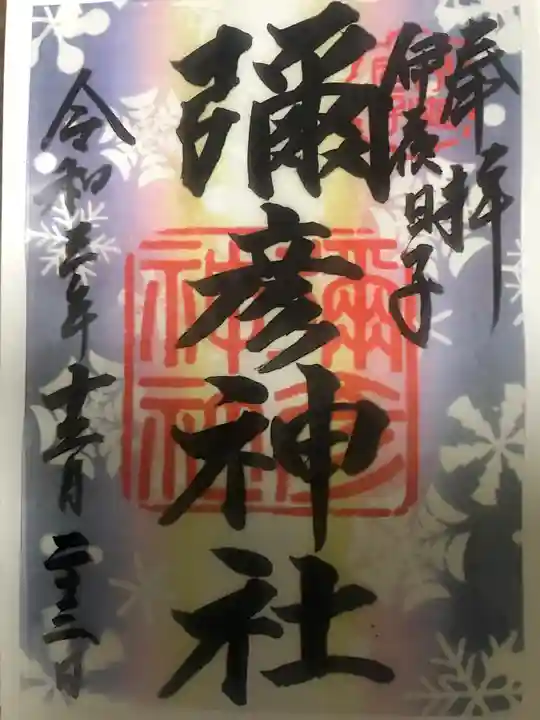 奉拝
伊夜日子
彌彦神社
彌彦
神社
令和三年十二月二十三日